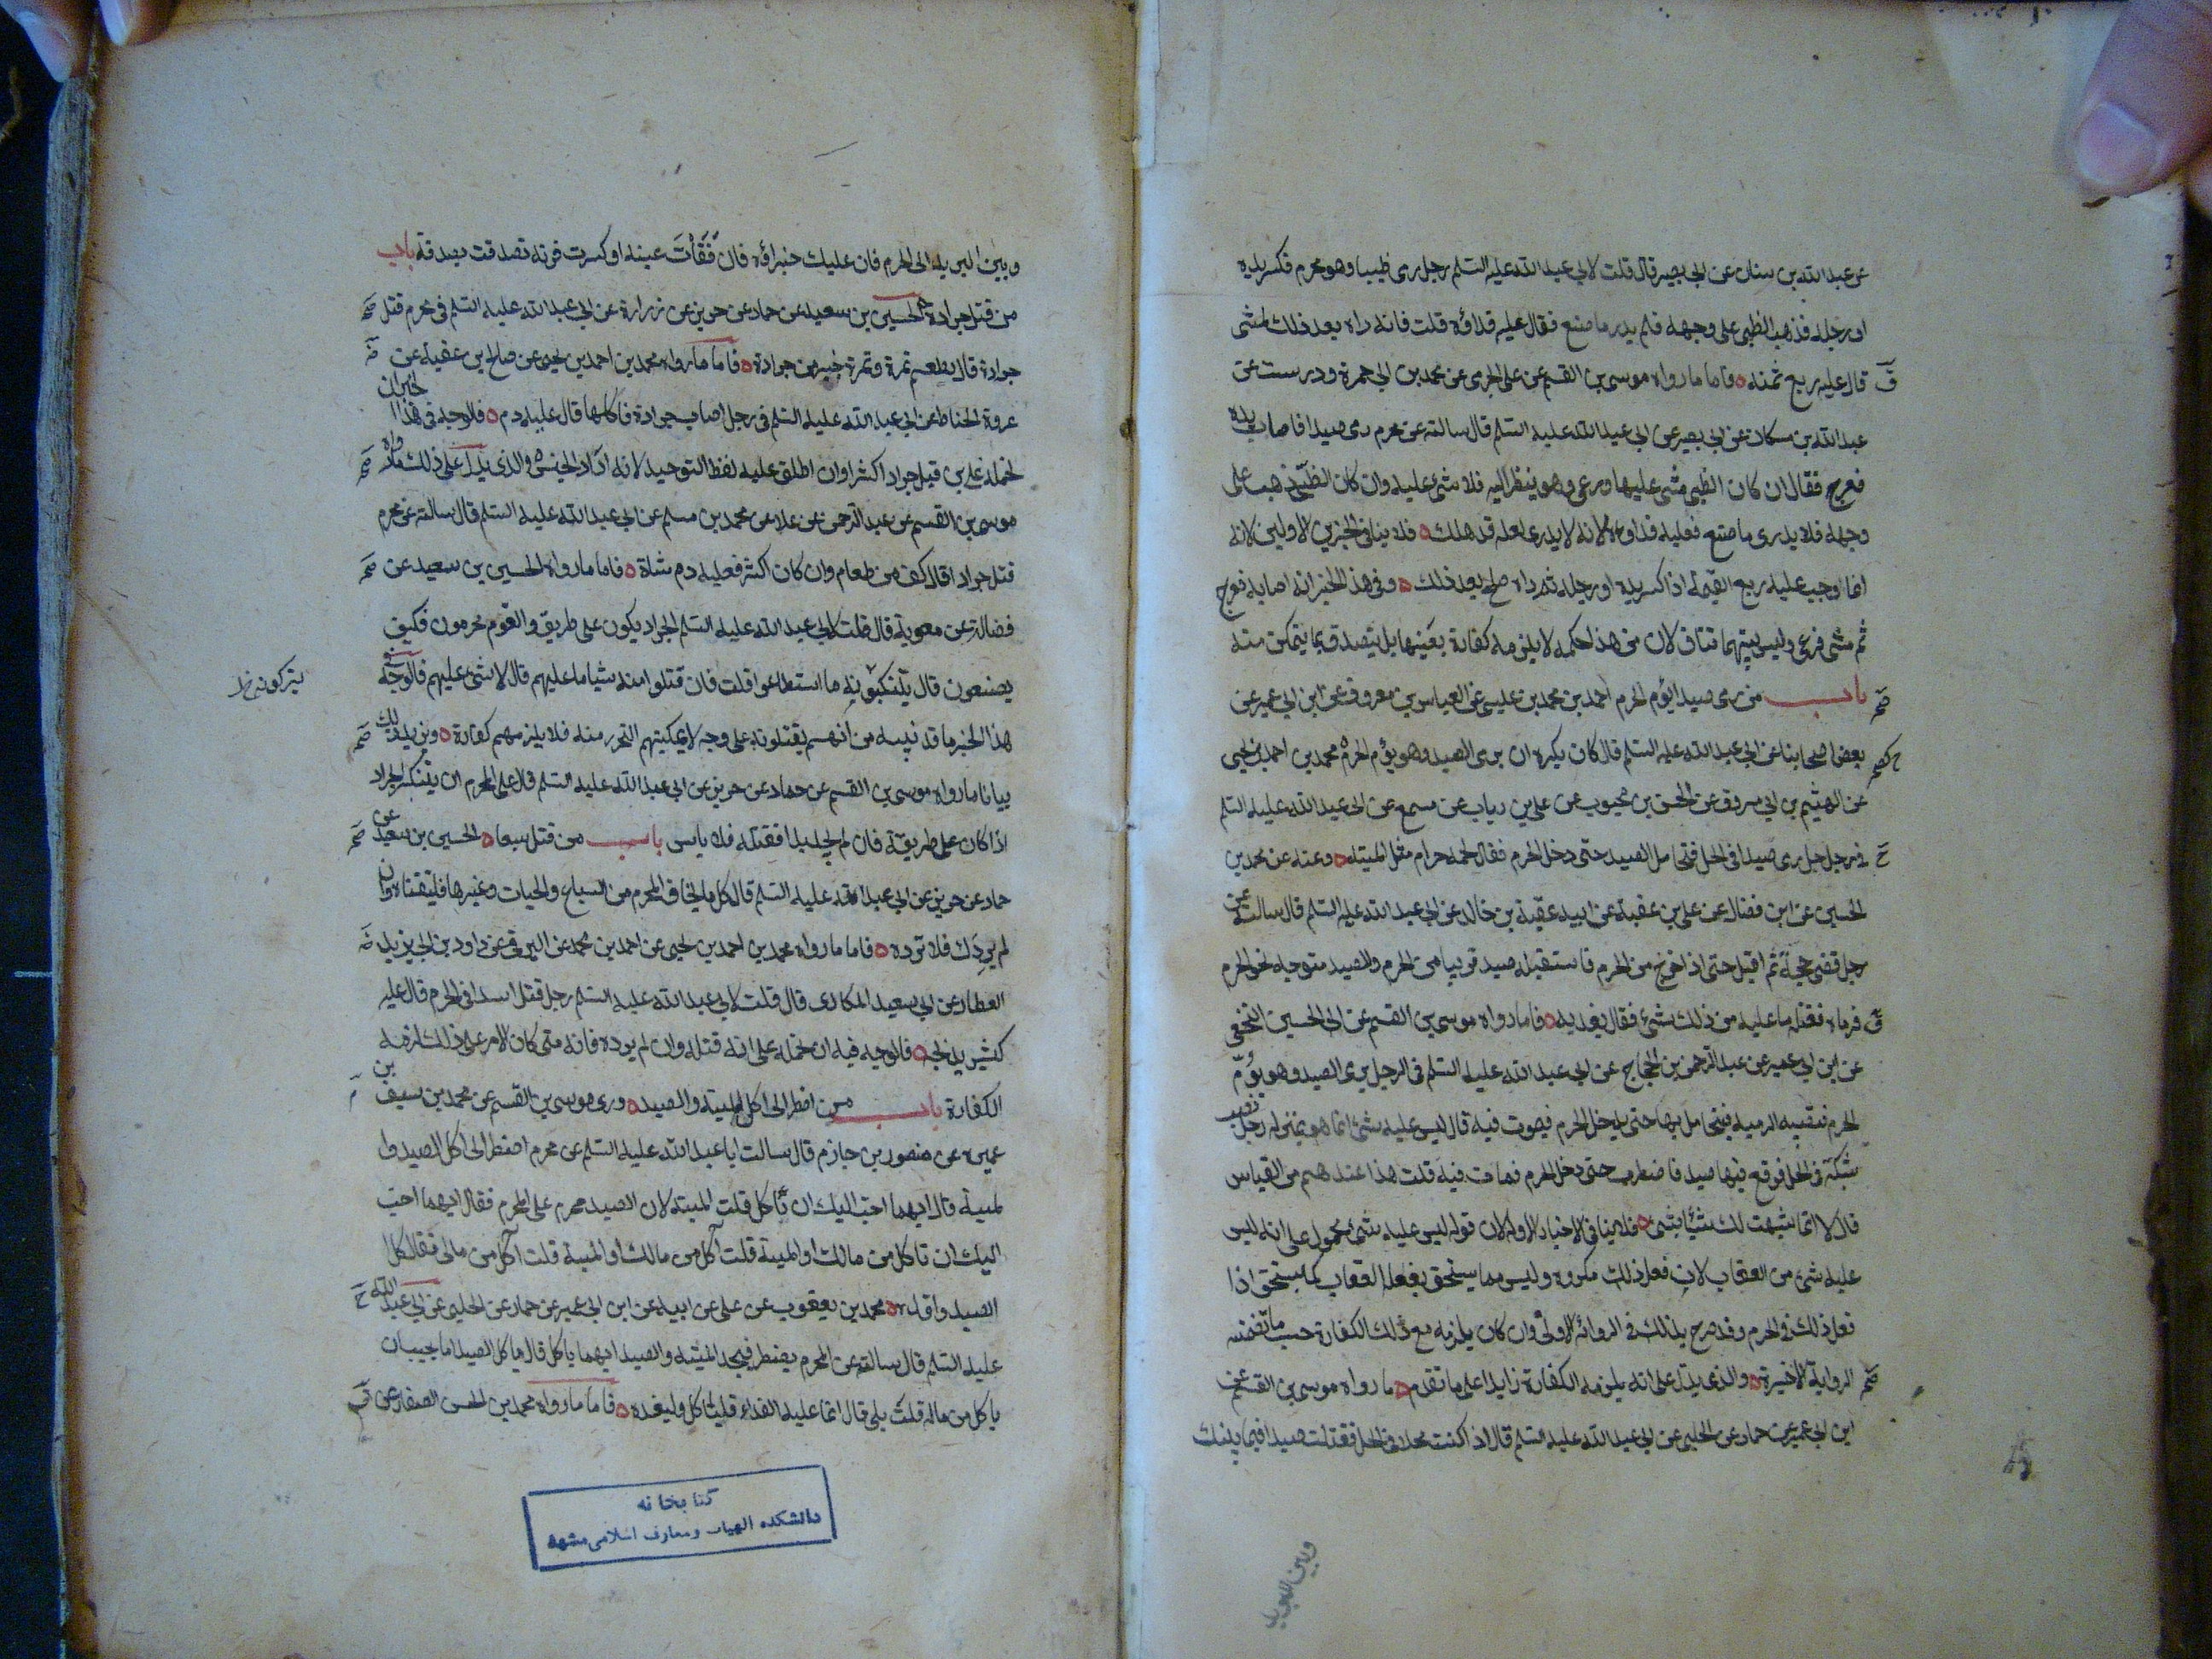 عن عبد الله بن سنان عن ابي بصير قال قلت لابي عبد الله عليه السلم رجل رمى ظبيا وهو محرم فكسر يده
او رجله فذهب الظبي على وجهه فلم يدر ما صنع فقال عليه فداؤه قلت فانه راه بعد ذلك لمشى
قال عليه ربع ثمنه فاما ما رواه موسى بن القسم عن على الجرمى عن محمد بن ابي حمزة ودرست عن
عبد الله بن مسكان عن ابي بصير عن ابي عبد الله عليه السلم قال سالته عن محرم رمى صيدا فاصاب يده
فعرج فقال ان كان الظبي مشى عليها ورعى وهو ينظر اليه فلا شئ عليه وان كان الظبي ذهب على
وجهه فلا يدرى ما صنع فعليه فداوه لانه لا يدرى لعله قد هلك فلا ينافى الخبرين الاولين لانه
انما وجب عليه ربع القيمة اذا كسر يده او رجله ثم راه صلح بعد ذلك وفى هذا الخبر انه اصابه فعرج
ثم مشى فرعى وليس بينهما تناف لان من هذا حكمه لا يلزمه كفارة بعينها بل يتصدق بما يتمكن منه
باب من رمى صيدا يؤم الحرم احمد بن محمد بن عيسى عن العباس بن معروف عن ابن ابي عمير عن
بعض اصحابنا عن ابي عبد الله عليه السلم قال كان يكره ان يرمى الصيد وهو يؤم الحرم محمد بن احمد بن يحيى
عن الهيثم بن ابي مسروق عن الحسن بن محبوب عن على بن رياب عن مسمع عن ابي عبد الله عليه السلم
فى رجل حل رمى صيدا فى الحل فتحامل الصيد حتى دخل الحرم فقال لحمه حرام مثل الميتة وعنه عن محمد بن
الحسين عن ابن فضال عن على بن عقبة عن ابيه عقبة بن خالد عن ابي عبد الله عليه السلم قال سالته عن
رجل قضى حجه ثم اقبل حتى اذا خرج من الحرم فاستقبله صيد قريبا من الحرم والصيد متوجه نحو الحرم
فرماه فقتله ما عليه من ذلك شئ فقال يفديه فاما رواه موسى بن القسم عن ابي الحسين النخعى
عن ابن ابي عمير عن عبد الرحمن بن الحجاج عن ابي عبد الله عليه السلم فى الرجل يرمى الصيد وهو يؤم
الحرم فتصيبه الرمية فيتحامل بها حتى يدخل الحرم فيموت فيه قال ليس عليه شئ انما هو بمنزلة رجل نصب
شبكة فى الحل فوقع فيها صيد فاضطرب حتى دخل الحرم فمات فيه قلت هذا عندهم من القياس
قال لا انما شبهت لك شيئا بشئ فلا ينافى الاخبار الاوله لان قوله ليس عليه شئ محمول على انه ليس
عليه شئ من العقاب لان فعل ذلك مكروه وليس مما يستحق بفعله العقاب كما يستحق اذا
فعل ذلك فى الحرم وقد صرح بذلك فى الرواية الاولى وان كان يلزمه مع ذلك الكفارة حسب ما تضمنته
الرواية الاخيرة والذى يدل على انه يلزمه الكفارة زايدا على ما تقدم ما رواه موسى بن القسم عن
ابن ابي عمير عن حماد عن الحلبى عن ابي عبد الله عليه السلم قال اذا كنت محلا فى الحل فقتلت صيدا فيما بينك
وبين البريد
وبين البريد الى الحرم فان عليك جزاؤه فان فقأت عينه او كسرت قرنه تصدقت بصدقة باب
من قتل جرادة الحسين بن سعيد عن حماد عن حريز عن زرارة عن ابي عبد الله عليه السلم فى محرم قتل
جرادة قال يطعم تمرة وتمرة خير من جرادة فاما ما رواه محمد بن احمد بن يحيى عن صالح بن عقبة عن
عروة الحناط عن ابي عبد الله عليه السلم فى رجل اصاب جرادة فاكلها قال عليه دم فالوجه فى هذا الخبر ان
نحمله على من قتل جرادا كثيرا وان اطلق عليه لفظ التوحيد لانه اراد الجنس والذى يدل على ذلك ما رواه
موسى بن القسم عن عبد الرحمن عن علا عن محمد بن مسلم عن ابي عبد الله عليه السلم قال سالته عن محرم
قتل جرادا قال كف من طعام وان كان اكثر فعليه دم شاة فاما ما رواه الحسين بن سعيد عن
فضالة عن معوية قال قلت لابي عبد الله عليه السلم الجراد يكون على طريق والقوم محرمون فكيف
يصنعون قال يتنكبونه ما استطاعوا قلت فان قتلوا منه شيئا ما عليهم قال لا شئ عليهم فالوجه فى
يتركونه خ
هذا الخبر ما قد نبينه من انهم يقتلونه على وجه لا يمكنهم التحرز منه فلا يلزمهم كفارة ويزيد ذلك
بيانا ما رواه موسى بن القسم عن حماد عن حريز عن ابي عبد الله عليه السلم قال على المحرم ان يتنكب الجراد
اذا كان على طريقه فان لم يجد بدا فقتله فلا باس باب من قتل سبعا الحسين بن سعيد عن
حماد عن حريز عن ابي عبد الله عليه السلم قال كل ما يخاف المحرم من السباع والحيات وغيرها فليقتله وان
لم يردك فلا ترده فاما ما رواه محمد بن احمد بن يحيى عن احمد بن محمد عن البرقى عن داود بن ابي يزيد
العطار عن ابي سعيد المكارى قال قلت لابي عبد الله عليه السلم رجل قتل اسدا فى الحرم قال عليه
كبش يذبحه فالوجه فيه ان نحمله على انه قتله وان لم يرده فانه متى كان الامر على ذلك لزمه
الكفارة باب من اضطر الى اكل الميتة والصيد روى موسى بن القسم عن محمد بن سيف بن
عميرة عن منصور بن حازم قال سالت ابا عبد الله عليه السلم عن محرم اضطر الى اكل الصيد وا
لميتة قال ايهما احب اليك ان تاكل قلت الميتة لان الصيد محرم على المحرم فقال ايهما احب
اليك ان تاكل من مالك او الميتة قلت آكل من مالك او الميتة قلت آكل من مالى فقال كل
الصيد وافده محمد بن يعقوب عن على عن ابيه عن ابن ابي عمير عن حماد عن الحلبى عن ابي عبد الله
عليه السلم قال سالته عن المحرم يضطر فيجد الميتة والصيد ايهما ياكل قال ياكل الصيد اما يحب ان
ياكل من ماله قلت بلى قال انما عليه الفداء فلياكل وليفده فاما ما رواه محمد بن الحسن الصفار عن
كتابخانه
دانشكده الهيات و معارف اسلامى مشهد